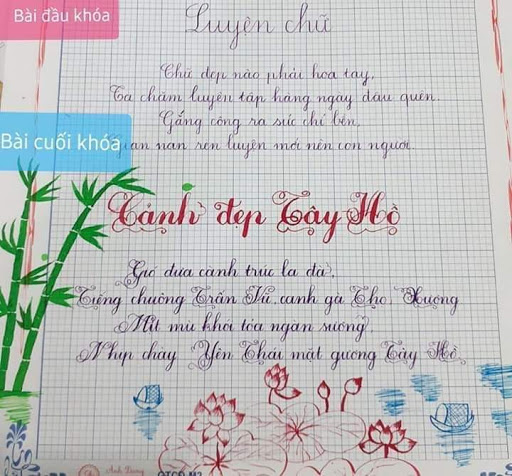 Bài đầu khóa
Luyện chữ
Chữ đẹp nào phải hoa tay,
Ta chăm luyện tập hàng ngày đâu quên.
Gắng công ra sức chí bền,
Bài cuối khóa
Gian nan rèn luyện mới nên con người.
Cảnh đẹp Tây Hồ
Gió đưa cành trúc la đà,
Tiếng chuông Trấn Vũ, canh gà Thọ Xương
Mịt mù khói tỏa ngàn sương,
Nhịp chày Yên Thái mặt gương Tây Hồ.
Anh Dương